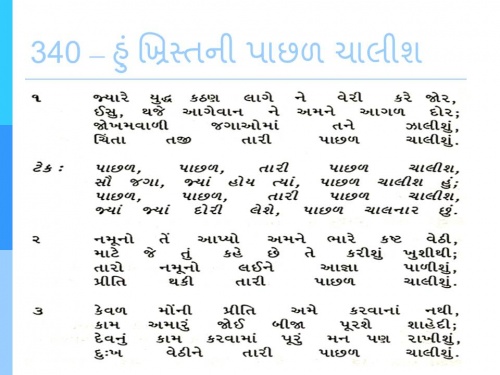 340 – હું ખ્રિસ્તની પાછળ ચાલીશ
૧ જ્યારે યુદ્ધ કઠણ લાગે ને વેરી કરે જોર,
ઈસુ, થજે આગેવાન ને અમને આગળ દોર;
જોખમવાળી જગાઓમાં તને ઝાલીશું,
ચિંતા તજી તારી પાછળ ચાલીશું.
ટેક : પાછળ, પાછળ, તારી પાછળ ચાલીશ,
સૌ જગા, જ્યાં હોય ત્યાં, પાછળ ચાલીશ હું;
પાછળ, પાછળ, તારી પાછળ ચાલીશ,
જ્યાં જ્યાં દોરી લેશે, પાછળ ચાલનાર છું.
૨ નમૂનો તેં આપ્યો અમને ભારે કષ્ટ વેઠી,
માટે જે તું કહે છે તે કરીશું ખુશીથી;
તારો નમૂનો લઈને આજ્ઞા પાળીશું,
પ્રીતિ થકી તારી પાછળ ચાલીશું.
૩ કેવળ મોંની પ્રીતિ અમે કરવાનાં નથી,
કામ અમારું જોઈ બીજા પૂરશે શાહેદી;
દેવનું કામ કરવામાં પૂરું મન પણ રાખીશું,
દુઃખ વેઠીને તારી પાછળ ચાલીશું.